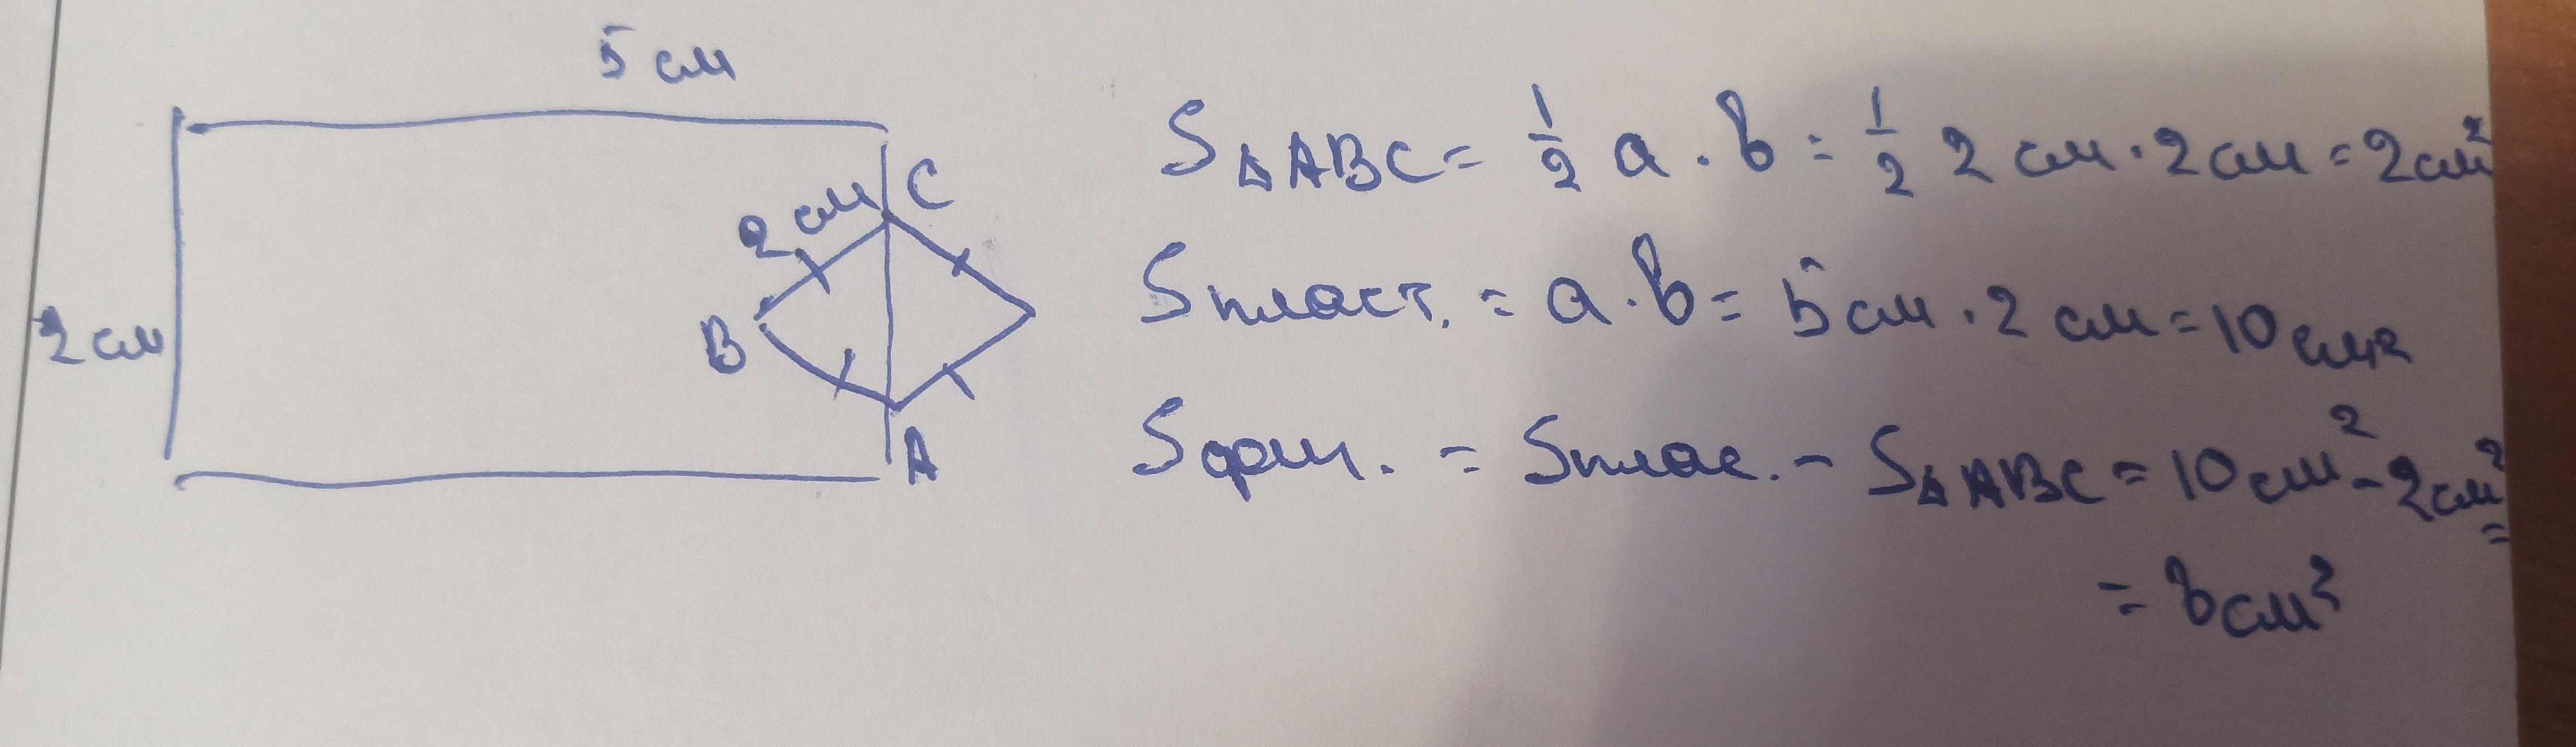 5 см
2 см
2 см
C
B
A
S△ABC = 1/2 a · b = 1/2 2 см · 2 см = 2 см²
Sпласт. = a · b = 5 см · 2 см = 10 см²
Sфиг. = Sплас. - S△ABC = 10 см² - 2 см² =
= 8 см²